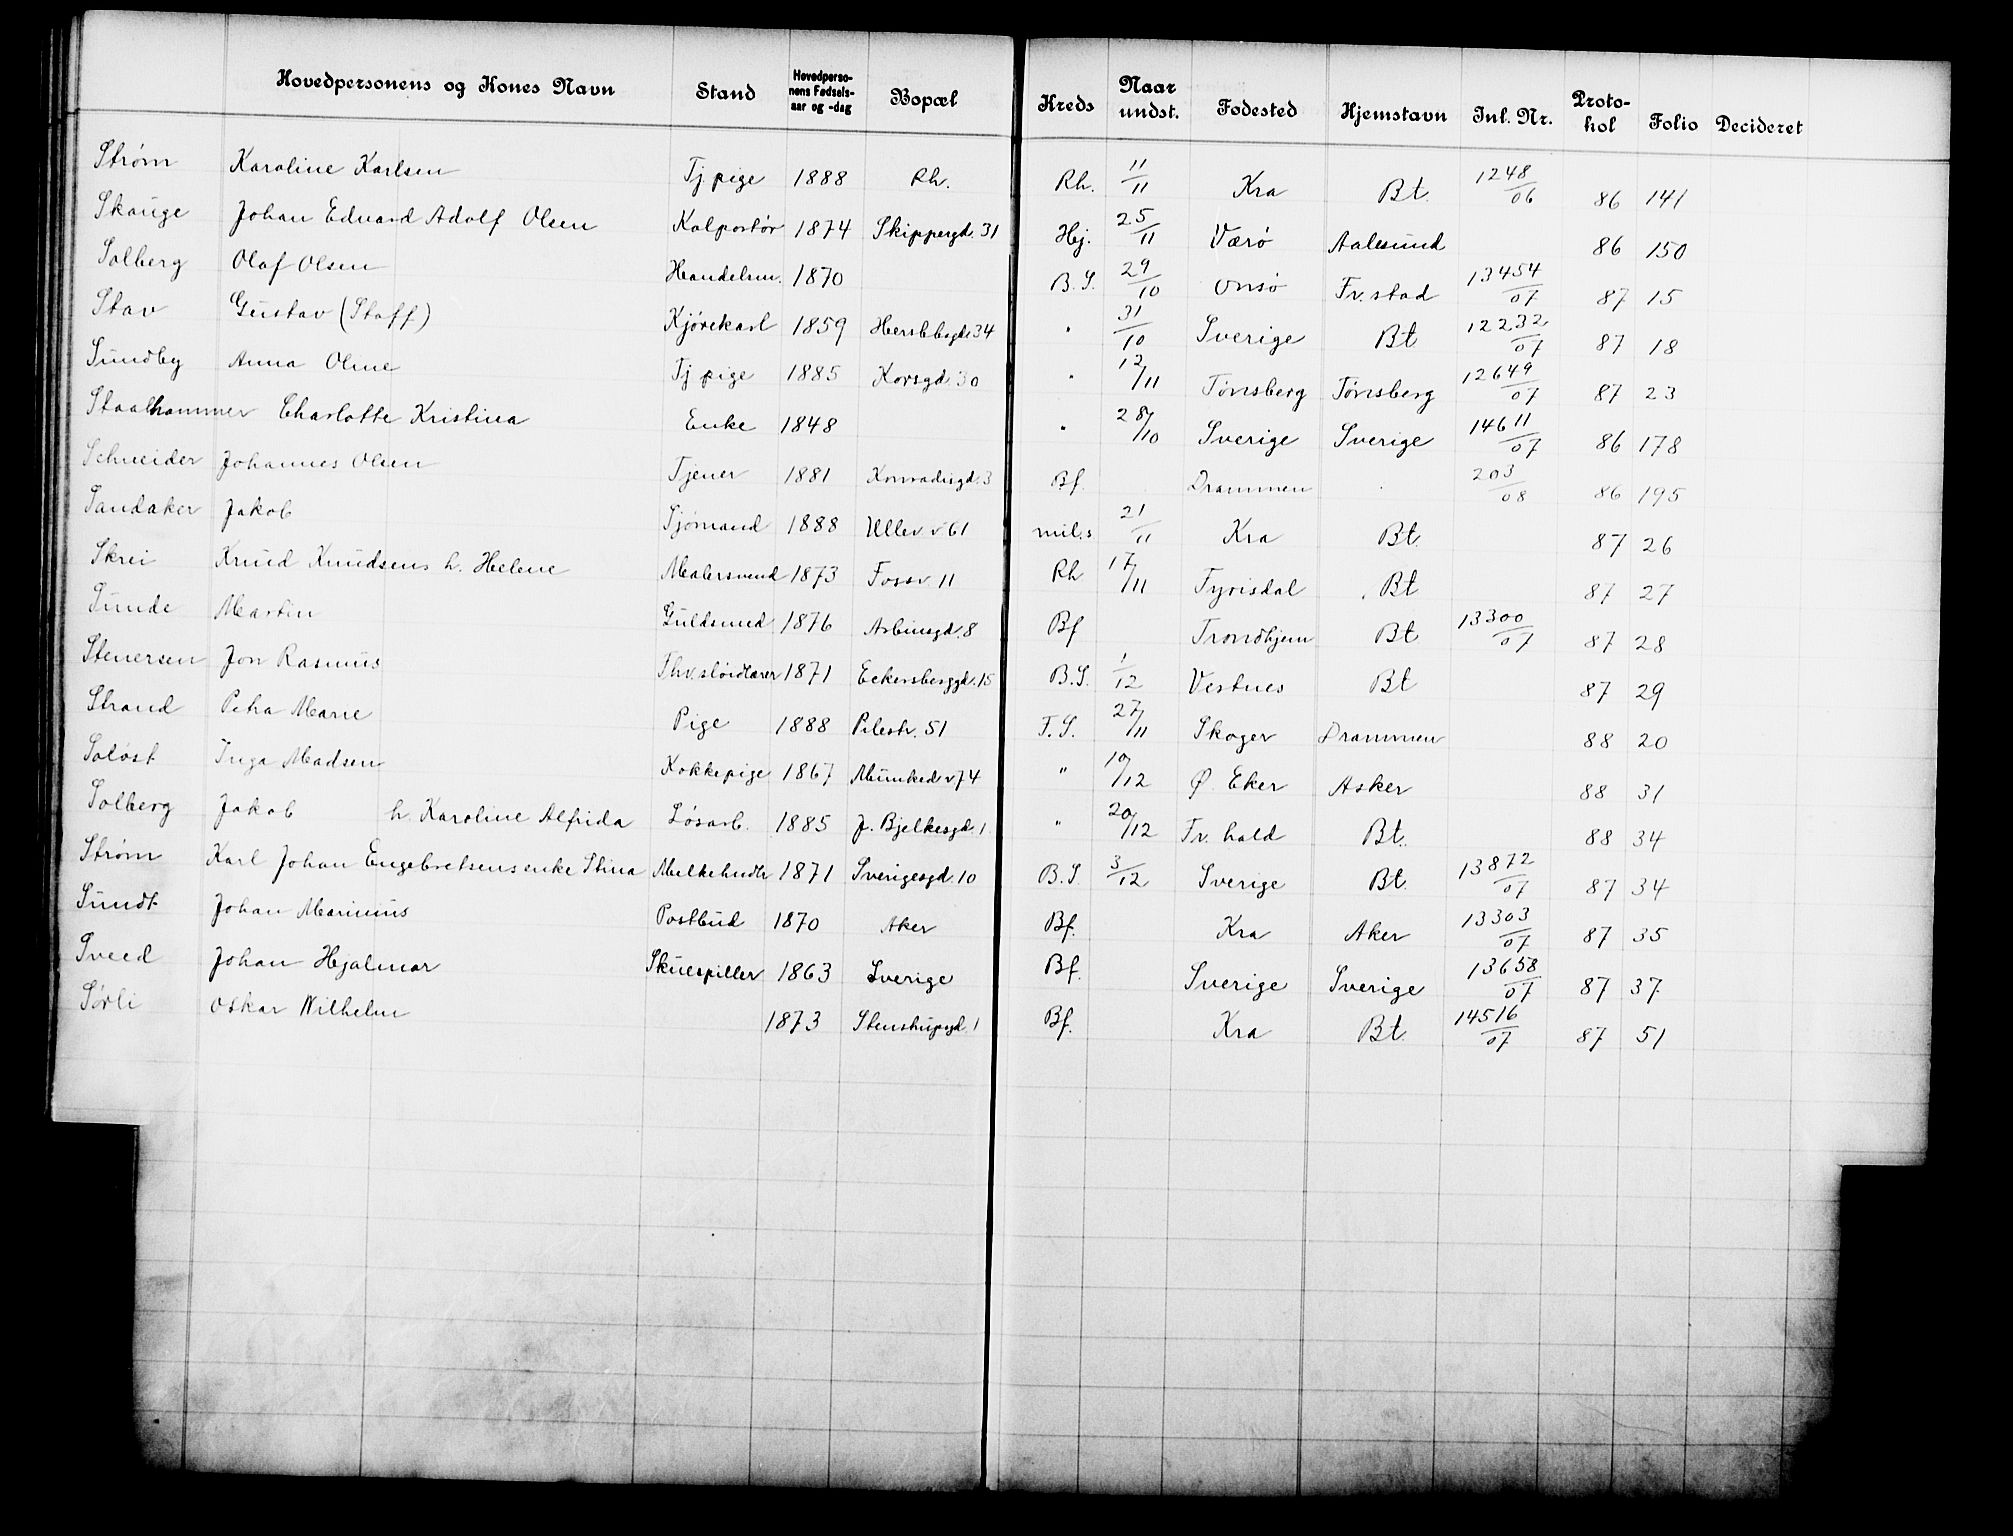 Hovedpersonens og Kones Navn Stand Hovedperso-nens Fødsels-aar og -dag Bopæl Kreds Naar undst. Fødested Hjemstavn Inl. Nr. Proto-kol Folio Decideret
Strøm Karoline Karlsen Tj. pige 1888 Rh. Rh. 11/11 Kra Bt. 1248/06 86 141
Skauge Johan Edvard Adolf Olsen Kolportør 1874 Skippergd. 31 Hej. 25/11 Værø Aalesund 86 150
Solberg Olaf Olsen Handelsm. 1870 B. S. 29/10 Onsø Fr. stad 13454/07 87 15
Stav Gustav (Staff) Kjørekarl 1859 Herslebsgd. 34 " 31/10 Sverige Bt 12232/07 87 18
Sundby Anna Oline Tj pige 1885 Korsgd. 30 " 12/11 Tønsberg Tønsberg 12649/07 87 23
Staalhammer Charlotte Kristina Enke 1848 " 28/10 Sverige Sverige 14611/07 86 178
Schneider Johannes Olsen Tjener 1881 Konradisgd. 3 Bf. Drammen 203/08 86 195
Sandaker Jakob Sjømand 1888 Ullev. v 61 mil. s. 21/11 Kra Bt. 87 26
Skrei Knud Knudsens h. Helene Malersvend 1873 Fossv. 11 Rh 17/11 Tyrisdal Bt 87 27
Sunde Martin Guldsmed 1876 Arbinsgd. 8 Bf Trondhjem Bt 13300/07 87 28
Stenersen Jon Rasmus Thv. sløidlærer 1871 Eckersberggd. 15 B. S. 1/12 Vestnes Bt 87 29
Strand Petra Marie Pige 1888 Pilestr. 51 F. S. 27/11 Skoger Drammen 88 20
Soløst Inga Madsen Kokkepige 1867 Munked v 74 " 10/12 Ø. Eker Asker 88 31
Solberg Jakob h. Karoline Alfrida Løsarb. 1885 J. Bjelkesgd. 1 " 20/12 Fr. hald Bt. 88 34
Strøm Karl Johan Engebretsens enke Stina Melkehndl 1871 Sverigesgd. 10 B. S. 3/12 Sverige Bt. 13872/07 87 34
Sundt Johan Marinius Postbud 1870 Aker Bf. Kra Aker 13303/07 87 35
Sveed Johan Hjalmar Skuespiller 1863 Sverige Bf. Sverige Sverige 13658/07 87 37
Sørli Oskar Wilhelm 1873 Stenstupgd. 1 Bf. Kra Bt. 14516/07 87 51